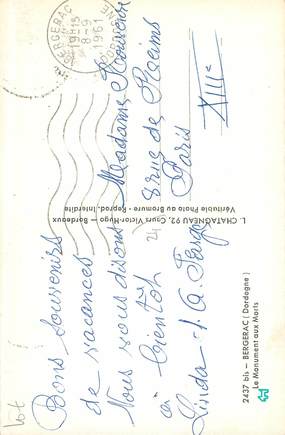 BERGERAC
19H15
8-9
1961
DORDOGNE
Bons souvenirs
de vacances
Nous vous disons
à bientôt
Linda
Madame
8 rue de Reims
Paris
XIIIe
24
L. CHATAGNEAU 92, Cours Victor-Hugo — Bordeaux
Véritable Photo au Bromure - Reprod. Interdite
2437 bis — BERGERAC (Dordogne)
Le Monument aux Morts
lot